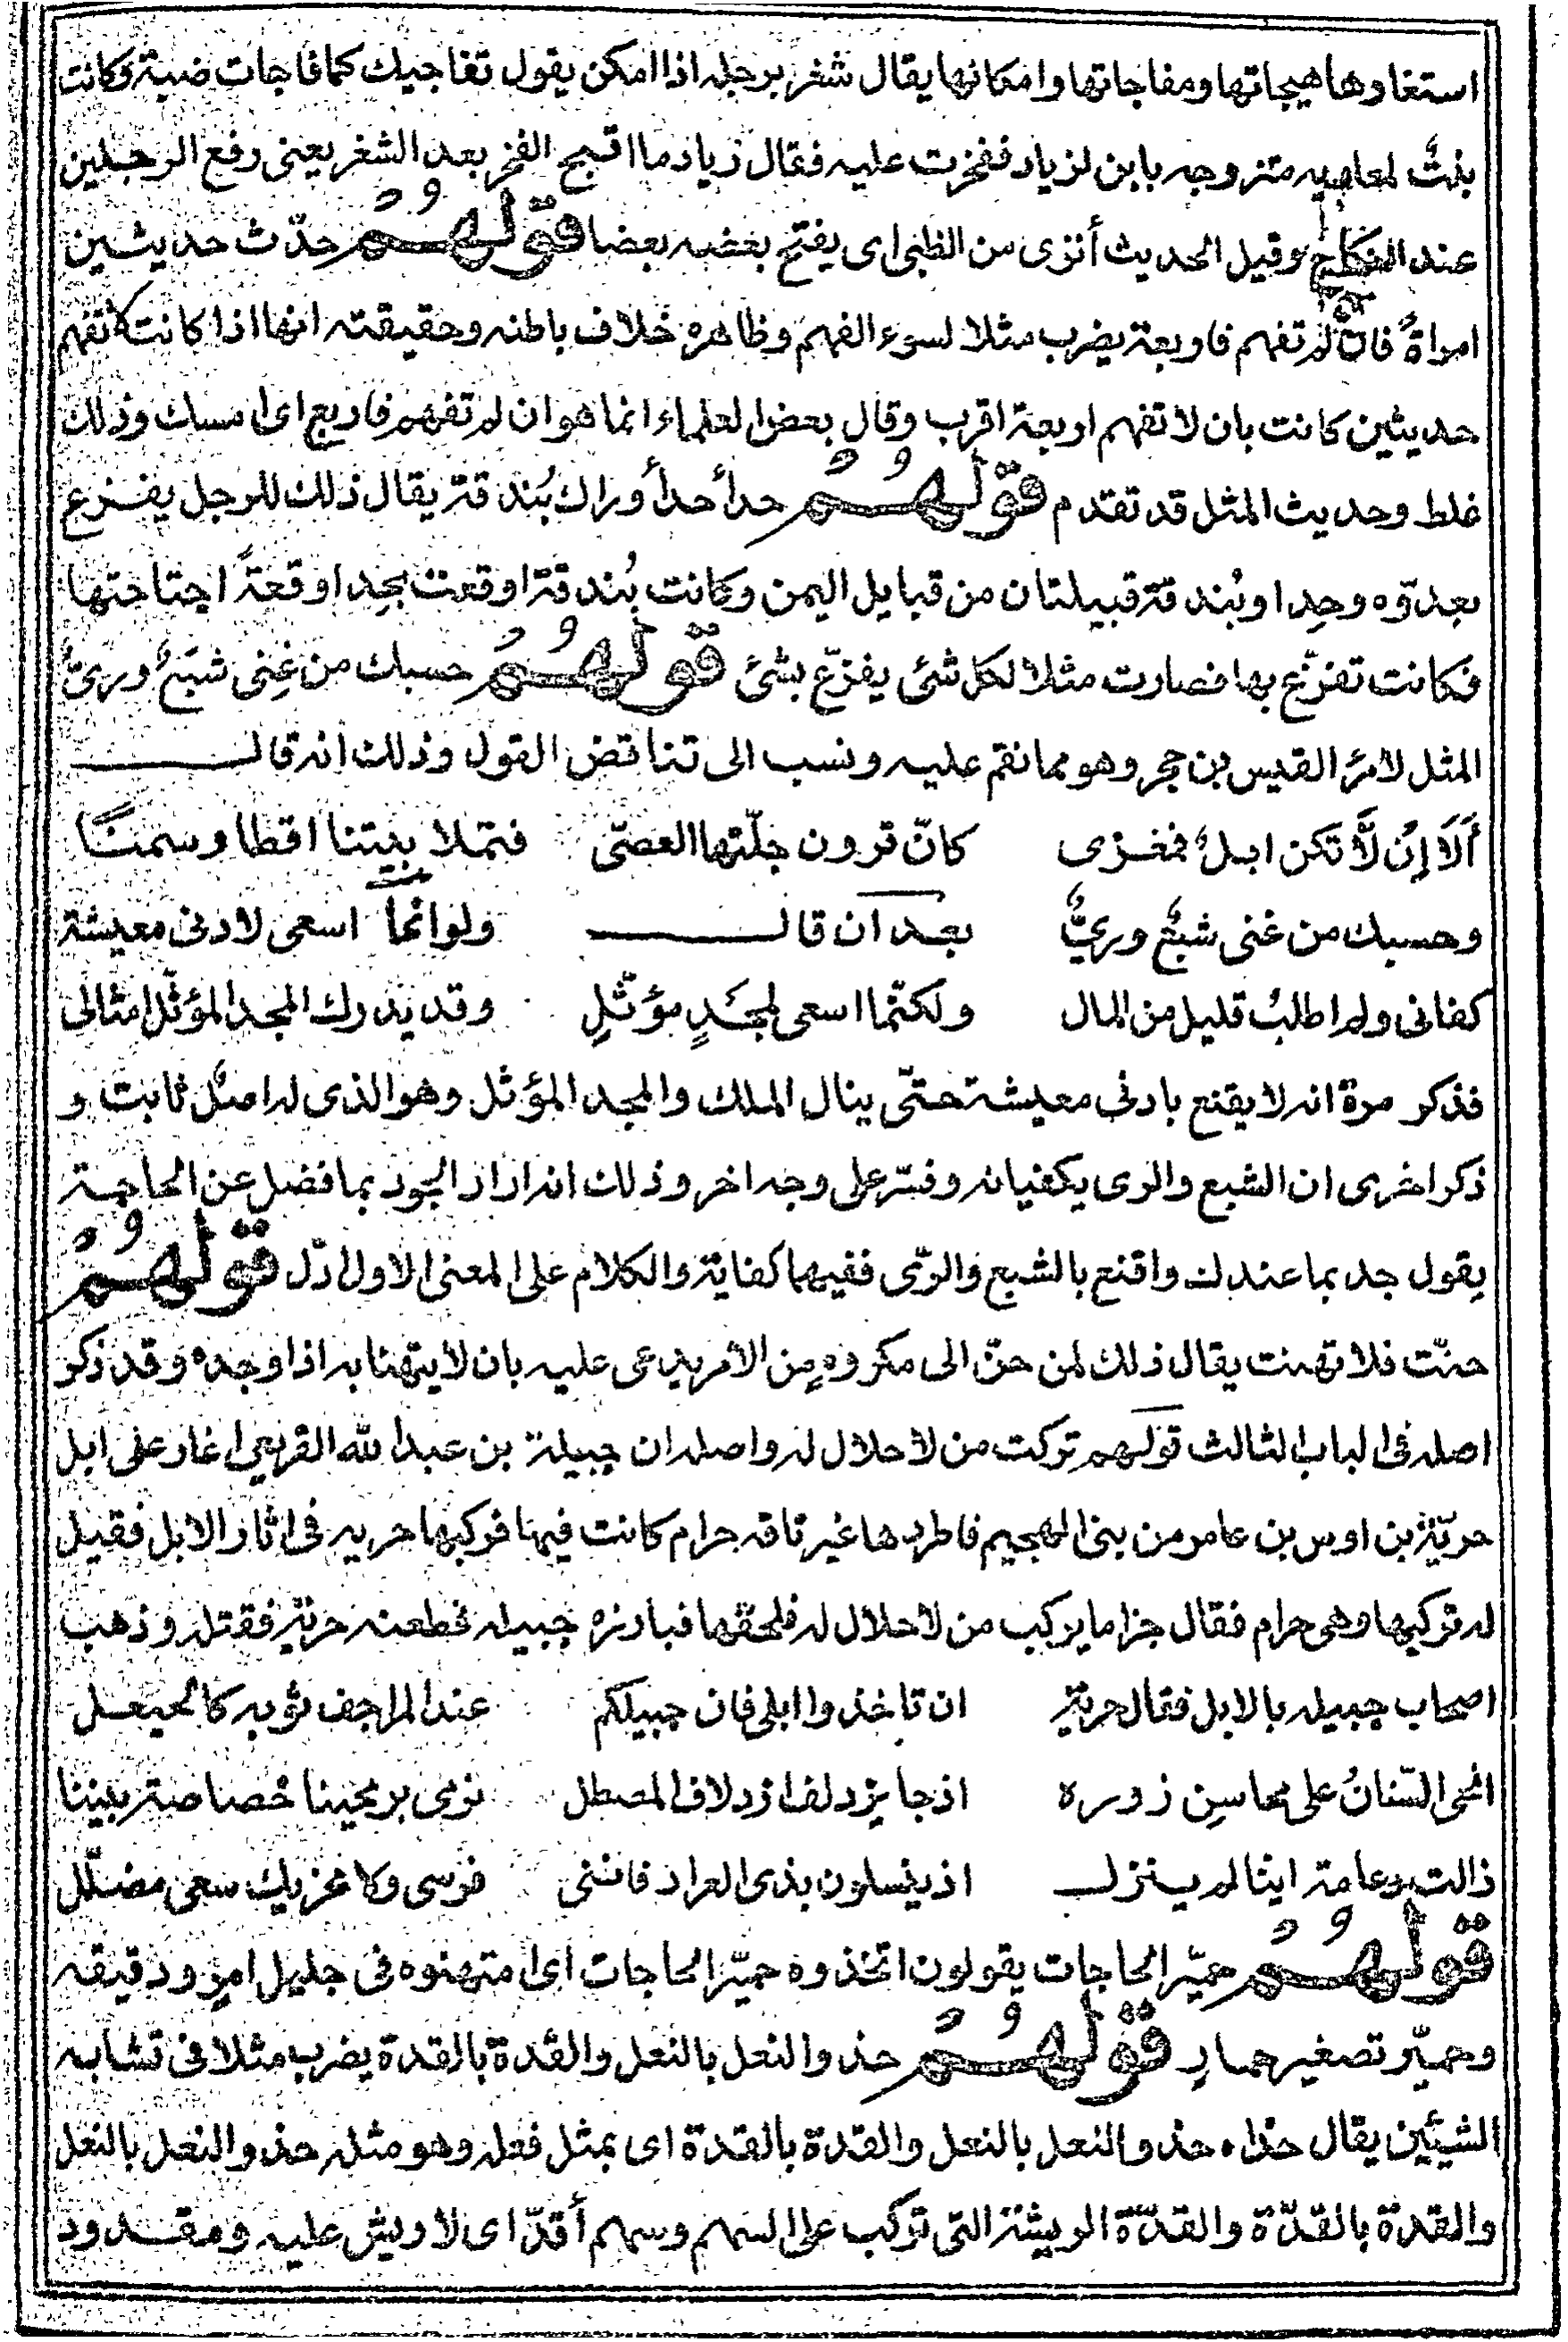 استغاوها هيجاتها ومفاجاتها وامكانها يقال شغر برجله اذا امكن يقول تفاجيك كما فاجات ضبة وكانت
بنتٌ لمعاويه متزوجه بابن لزياد ففخرت عليه فقال زياد ما اقبح الفخر بعد الشغر يعنى رفع الرجلين
عند النكاح وقيل الحديث أنزى من الظبى اى يفتح بعضه بعضا قولهُم حدّث حديثين
امراةً فان لم تفهم فاربعة يضرب مثلا لسوء الفهم وظاهره خلاف باطنه وحقيقته انها اذا كانت لا تفهم
حديثين كانت بان لا تفهم اربعة اقرب وقال بعض العلماء انما هو ان لم تفهم فاربع اى امسك وذلك
غلط وحديث المثل قد تقدم قولهُم حدأ حدأ وراك بُندقة يقال ذلك للرجل يفزع
بعدوّه وحِدا وبُندقة قبيلتان من قبايل اليمن وكانت بُندقة اوقعت بحِدا وقعةً اجتاحتها
فكانت تفزّع بها فصارت مثلا لكل شئ يفزّع بشئ قولهُم حسبك من غِنى شبَعٌ وريٌّ
المثل لامرٔ القيس بن حجر وهو مما نقم عليه ونسب الى تناقض القول وذلك انه قال
أَلَا إِن لَّا تكن ابلٌ فمغزى كانّ قرون جلّتها العصىّ فتملا بيتنا اقطا وسمنًا
وحسبك من غنى شبعٌ وريٌّ بعد ان قال ولو انما اسعى لادنى معيشة
كفانى ولم اطلبُ قليل من المال ولكنّما اسعى لمجدٍ مؤثّلِ وقد يدرك المجد المؤثّل امثالى
فذكر مرة انه لا يقنع بادنى معيشة حتىّ ينال الملك والمجد المؤثل وهو الذى له اصلٌ ثابت و
ذكر اخرى ان الشبع والرى يكفيانه وفسّر على وجه اخر وذلك انه اراد الجود بما فضل عن الحاجة
يقول جد بما عندك واقنع بالشبع والرّى ففيهما كفاية والكلام على المعنى الاول ادّل قولهُم
حنّت فلا تهنت يقال ذلك لمن حنّ الى مكروهٍ من الامر يدعى عليه بان لا يتهنا به اذا وجده وقد ذكر
اصله فى الباب الثالث قولهم تركت من لا حلال له واصله ان جبيلة بن عبد الله القريعى اغار على ابل
حريّة بن اوس بن عامر من بنى الهجيم فاطردها غير ناقه حرام كانت فيها فركبها حريه فى اثار الابل فقيل
له تركبها وهى حرام فقال حراما يركب من لا حلال له فلحقها فبارزه جبيله فطعنه حرية فقتله وذهب
اصحاب جبيله بالابل فقال حرية ان تاخذوا ابلى فان جبيلكم عند المراجف ثوبه كالخيعل
انحى السّنانُ على محاسِن زوره اذ جا يزدلف ازدلاف المصطل نرمى برمحينا خصاصة بيننا
زالت دعامة اينا لم ينزل اذ ينسلون بذى العراد فاننى فرسى وكا يحزيك سعى مضلّل
قولهُم حميّر الحاجات يقولون اتخذوه حميّر الحاجات اى امتهنوه فى جليل امرٍ ودقيقه
وحميّر تصغير حمارٍ قولهُم حذو النعل بالنعل والقُدة بالقدة يضرب مثلا فى تشابه
الشيئين يقال حذاه حذو النعل بالنعل والقدة بالقدة اى بمثل فعله وهو مثله حذو النعل بالنعل
والقدة بالقدّة والقدّة الريشة التى تركب على السهم وسهم أقدّ اى لا ريش عليه ومقدود